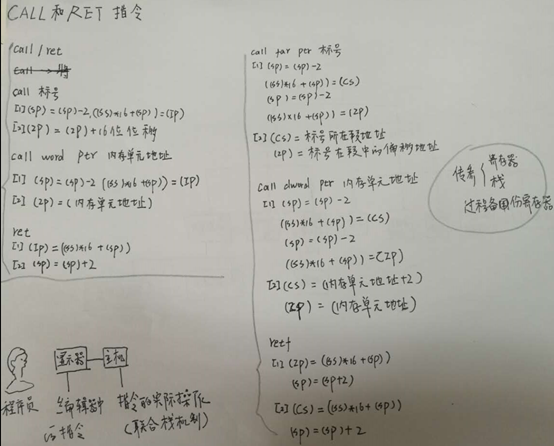 CALL和RET 指令
call/ret
call 标号
[1](sp)=(sp)-2,((ss)*16+(sp))=(IP)
[2](IP)=(IP)+16位位移
call word ptr 内存单元地址
[1] (sp)=(sp)-2 ((ss)*16+(sp))=(IP)
[2] (IP)=(内存单元地址)
ret
[1](Ip)=((ss)*16+(sp))
[2](sp)=(sp)+2
call far ptr 标号
[1](sp)=(sp)-2
((ss)*16+(sp))=(CS)
(sp)=(sp)-2
((ss)*16+(sp))=(IP)
[2](CS)=标号所在段地址
(IP)=标号在段中的偏移地址
call dword ptr 内存单元地址
[1](sp)=(sp)-2
((ss)*16+(sp))=(CS)
(sp)=(sp)-2
((ss)*16+(sp))=(IP)
[2](CS)=(内存单元地址+2)
(IP)=(内存单元地址)
retf
[1](IP)=((ss)*16+(sp))
(sp)=(sp+2)
[2](CS)=((ss)*16+(sp))
(sp)=(sp)+2
传参
寄存器
栈
过程备份寄存器
显示器
主机
程序员
编辑器中
写指令
指令的实际操作
(联合栈机制)